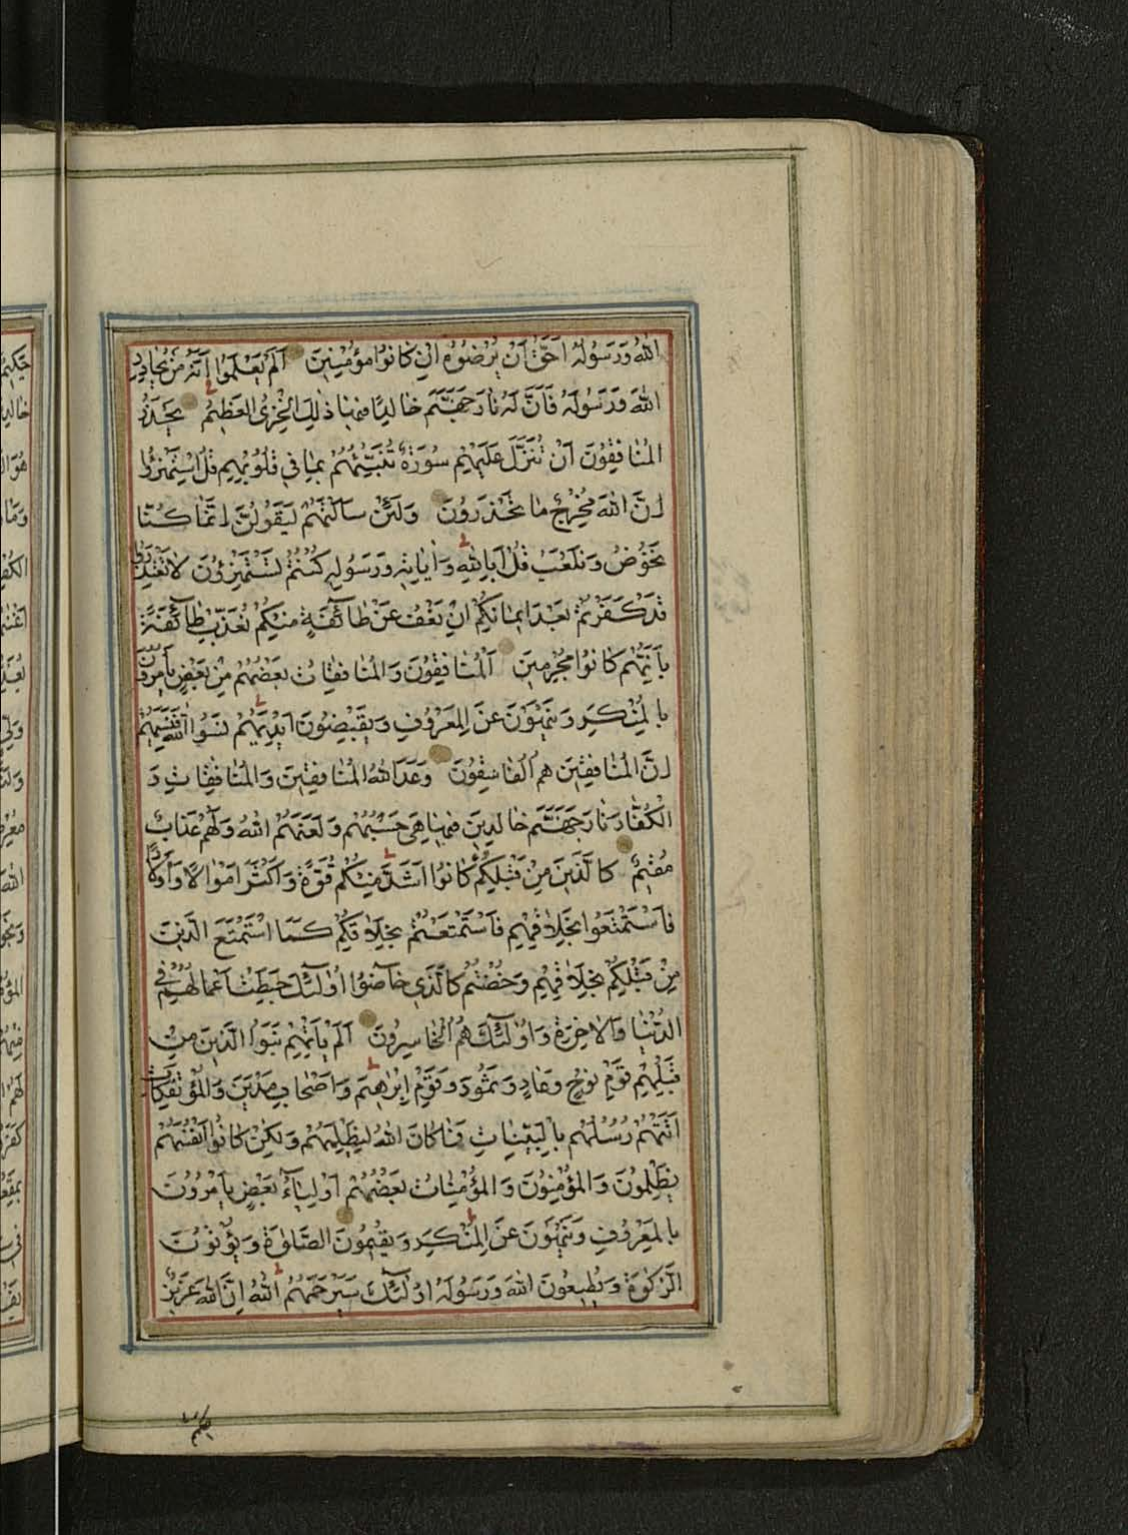 اللهُ وَرَسُولُهُ اَحَقُّ اَنْ يُرْضُوُهُ اِنْ كٰانوُا مُؤْمِنينَ اَلَمْ يَعْلَمُوا اَنَّهُ مَنْ يُحٰادِدِ
اللهَ وَرَسُولَهُ فَاَنَّ لَهُ نٰارَ جَهَنَّمَ خٰالِدًا فيهٰا ذٰلِكَ الْخِزْىُ الْعَظيمُ يَحْذَرُ
الْمُنٰافِقُونَ اَنْ تُنَزَّلَ عَلَيْهِمْ سُورَةٌ تُنَبِّئُهُمْ بِمٰا فى قُلُوبِهِمْ قُلِ اسْتَهْزِؤُا
اِنَّ اللهَ مُخْرِجٌ مٰا تَحْذَرُونَ وَلَئِنْ سَاَلْتَهُمْ لَيَقُولُنَّ اِنَّمٰا كُنّٰا
نَخُوضُ وَنَلْعَبُ قُلْ اَبِاللهِ وَاٰيٰاتِهِ وَرَسُولِهِ كُنْتُمْ تَسْتَهْزِؤُنَ لٰا تَعْتَذِرُوا
قَدْ كَفَرْتُمْ بَعْدَ ايمٰانِكُمْ اِنْ نَعْفُ عَنْ طٰائِفَةٍ مِنْكُمْ نُعَذِّبْ طٰائِفَةً
بِاَنَّهُمْ كٰانُوا مُجْرِمينَ اَلْمُنٰافِقُونَ وَالْمُنٰافِقٰاتُ بَعْضُهُمْ مِنْ بَعْضٍ يَأْمُرُونَ
بِالْمُنْكَرِ وَيَنْهَوْنَ عَنِ الْمَعْرُوفِ وَيَقْبِضُونَ اَيْدِيَهُمْ نَسُوا اللهَ فَنَسِيَهُمْ
اِنَّ الْمُنٰافِقينَ هُمُ الْفٰاسِقُونَ وَعَدَ اللهُ الْمُنٰافِقينَ وَالْمُنٰافِقٰاتِ وَ
الْكُفّٰارَ نٰارَ جَهَنَّمَ خٰالِدينَ فيهٰا هِىَ حَسْبُهُمْ وَلَعَنَهُمُ اللهُ وَلَهُمْ عَذٰابٌ
مُقيمٌ كَالَّذينَ مِنْ قَبْلِكُمْ كٰانُوا اَشَدَّ مِنْكُمْ قُوَّةً وَاَكْثَرَ اَمْوٰالًا وَاَوْلٰادًا
فَاسْتَمْتَعُوا بِخَلٰاقِهِمْ فَاسْتَمْتَعْتُمْ بِخَلٰاقِكُمْ كَمَا اسْتَمْتَعَ الَّذينَ
مِنْ قَبْلِكُمْ بِخَلٰاقِهِمْ وَخُضْتُمْ كَالَّذى خٰاضُوا اُولٰئِكَ حَبِطَتْ اَعْمٰالُهُمْ فِى
الدُّنْيٰا وَالْاٰخِرَةِ وَاُولٰئِكَ هُمُ الْخٰاسِرُونَ اَلَمْ يَأْتِهِمْ نَبَؤُا الَّذينَ مِنْ
قَبْلِهِمْ قَوْمِ نُوحٍ وَعٰادٍ وَثَمُودَ وَقَوْمِ اِبْرٰهيمَ وَاَصْحٰابِ مَدْيَنَ وَالْمُؤْتَفِكٰاتِ
اَتَتْهُمْ رُسُلُهُمْ بِالْبَيِّنٰاتِ فَمٰا كٰانَ اللهُ لِيَظْلِمَهُمْ وَلٰكِنْ كٰانُوا اَنْفُسَهُمْ
يَظْلِمُونَ وَالْمُؤْمِنُونَ وَالْمُؤْمِنٰاتُ بَعْضُهُمْ اَوْلِيٰاءُ بَعْضٍ يَأْمُرُونَ
بِالْمَعْرُوفِ وَيَنْهَوْنَ عَنِ الْمُنْكَرِ وَيُقيمُونَ الصَّلوٰةَ وَيُؤْتُونَ
الزَّكوٰةَ وَيُطيعُونَ اللهَ وَرَسُولَهُ اُولٰئِكَ سَيَرْحَمُهُمُ اللهُ اِنَّ اللهَ عَزيزٌ